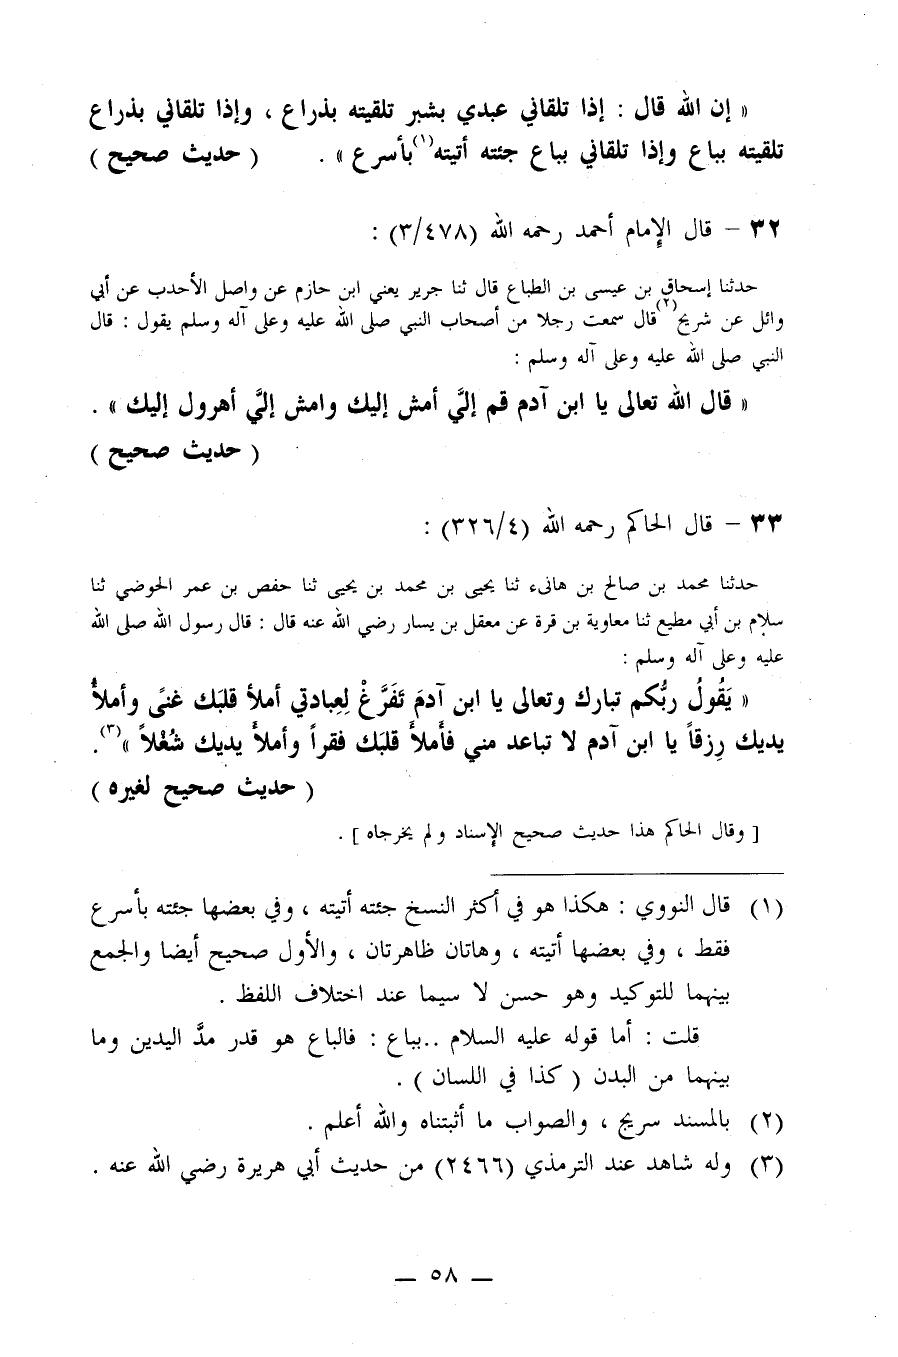 « إن الله قال : إذا تلقاني عبدي بشبر تلقيته بذراع ، وإذا تلقاني بذراع
تلقيته بباع وإذا تلقاني بباع جئته أتيته(١) بأسرع » . ( حديث صحيح )
٣٢ – قال الإمام أحمد رحمه الله (٣/٤٧٨) :
حدثنا إسحاق بن عيسى بن الطباع قال ثنا جرير يعني ابن حازم عن واصل الأحدب عن أبي
وائل عن شريح(٢) قال سمعت رجلا من أصحاب النبي صلى الله عليه وعلى آله وسلم يقول : قال
النبي صلى الله عليه وعلى آله وسلم :
« قال الله تعالى يا ابن آدم قم إليَّ أمش إليك وامش إليَّ أهرول إليك » .
( حديث صحيح )
٣٣ – قال الحاكم رحمه الله (٣٢٦/٤) :
حدثنا محمد بن صالح بن هانىء ثنا يحيى بن محمد بن يحيى ثنا حفص بن عمر الحوضي ثنا
سلام بن أبي مطيع ثنا معاوية بن قرة عن معقل بن يسار رضي الله عنه قال : قال رسول الله صلى الله
عليه وعلى آله وسلم :
« يَقُولُ ربُّكم تبارك وتعالى يا ابن آدمَ تَفَرَّغْ لِعِبادتي أملأ قلبَك غنىً وأملأُ
يديك رِزقاً يا ابن آدم لا تباعد مني فأَملأَ قلبَك فقراً وأملأَ يديك شُغْلاً »(٣).
( حديث صحيح لغيره )
[ وقال الحاكم هذا حديث صحيح الإسناد ولم يخرجاه ] .
(١) قال النووي : هكذا هو في أكثر النسخ جئته أتيته ، وفي بعضها جئته بأسرع
فقط ، وفي بعضها أتيته ، وهاتان ظاهرتان ، والأول صحيح أيضا والجمع
بينهما للتوكيد وهو حسن لا سيما عند اختلاف اللفظ .
قلت : أما قوله عليه السلام ..بباع : فالباع هو قدر مدَّ اليدين وما
بينهما من البدن ( كذا في اللسان ) .
(٢) بالمسند سريج ، والصواب ما أثبتناه والله أعلم .
(٣) وله شاهد عند الترمذي (٢٤٦٦) من حديث أبي هريرة رضي الله عنه .
— ٥٨ —